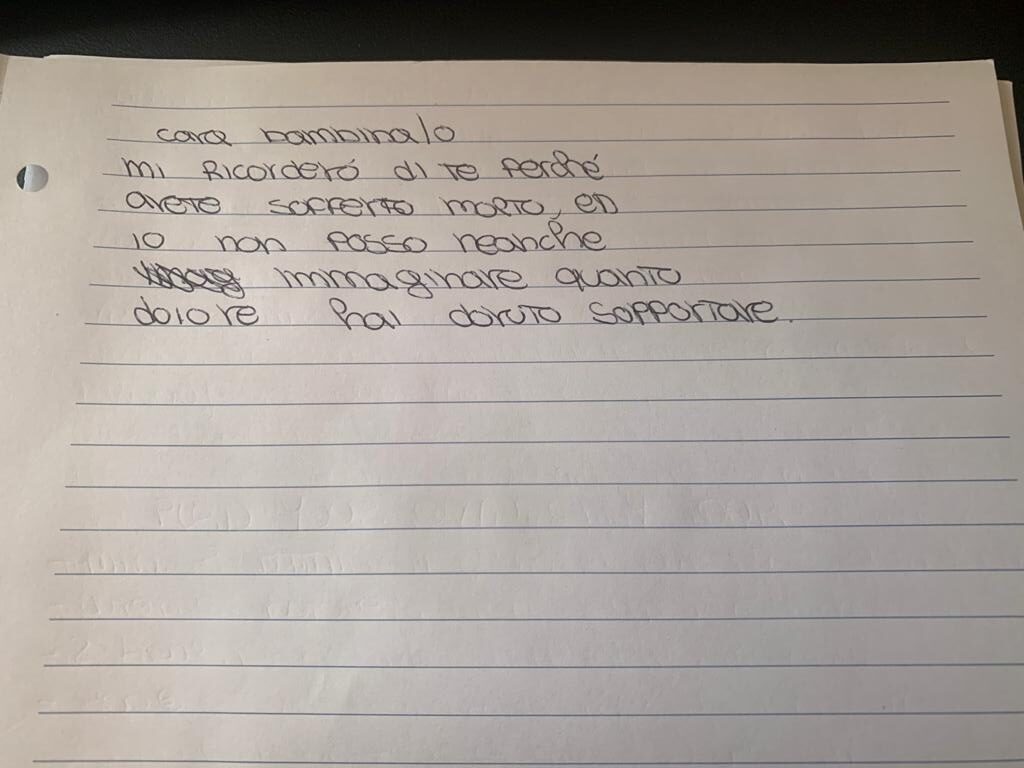 cara bambina/o
mi Ricorderó di te perché
avete sofferto molto, ed
io non posso neanche
immaginare quanto
dolore hai dovuto sopportare.